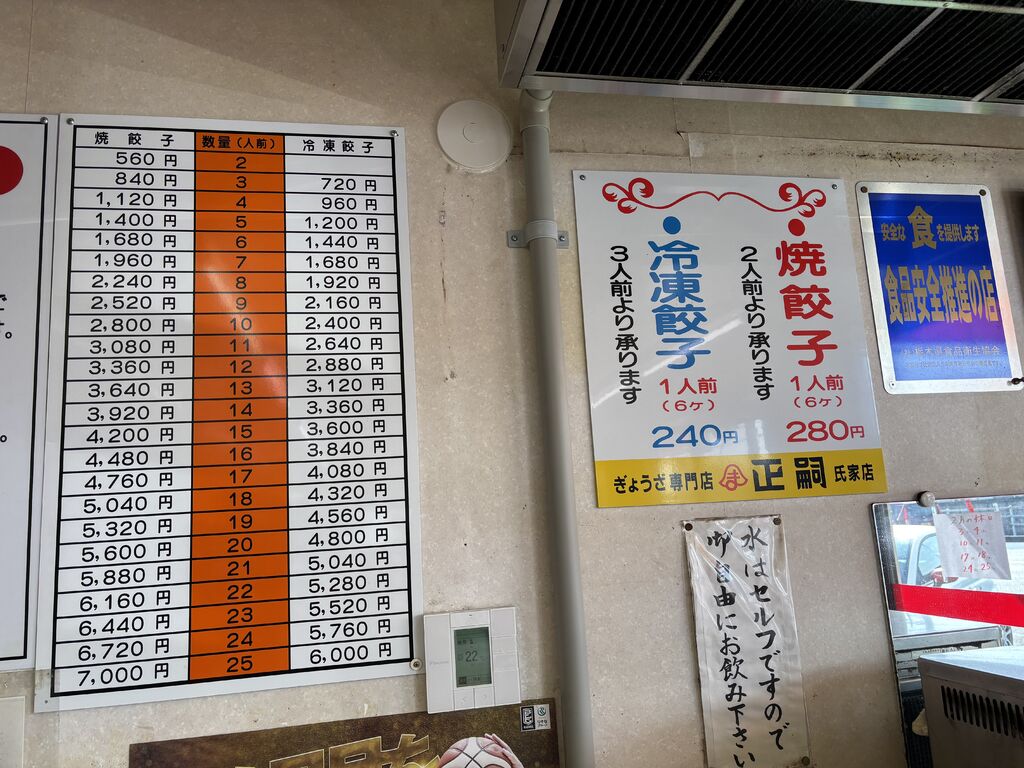 焼餃子 数量(人前) 冷凍餃子
560円 2
840円 3 720円
1,120円 4 960円
1,400円 5 1,200円
1,680円 6 1,440円
1,960円 7 1,680円
2,240円 8 1,920円
2,520円 9 2,160円
2,800円 10 2,400円
3,080円 11 2,640円
3,360円 12 2,880円
3,640円 13 3,120円
3,920円 14 3,360円
4,200円 15 3,600円
4,480円 16 3,840円
4,760円 17 4,080円
5,040円 18 4,320円
5,320円 19 4,560円
5,600円 20 4,800円
5,880円 21 5,040円
6,160円 22 5,280円
6,440円 23 5,520円
6,720円 24 5,760円
7,000円 25 6,000円
●焼餃子
1人前
(6ヶ)
280円
2人前より承ります
●冷凍餃子
1人前
(6ヶ)
240円
3人前より承ります
ぎょうざ専門店 ま 正嗣 氏家店
安全な食を提供します
食品安全推進の店
栃木県食品衛生協会
水はセルフですので
御自由にお飲み下さい
22